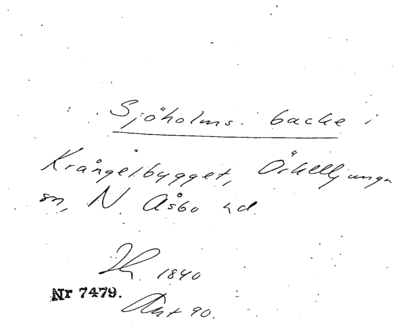 Sjöholms backe i
Krångelbygget, Örkelljunga
sn, N. Åsbo hd
1840
Nr 7479.
Ant 90.